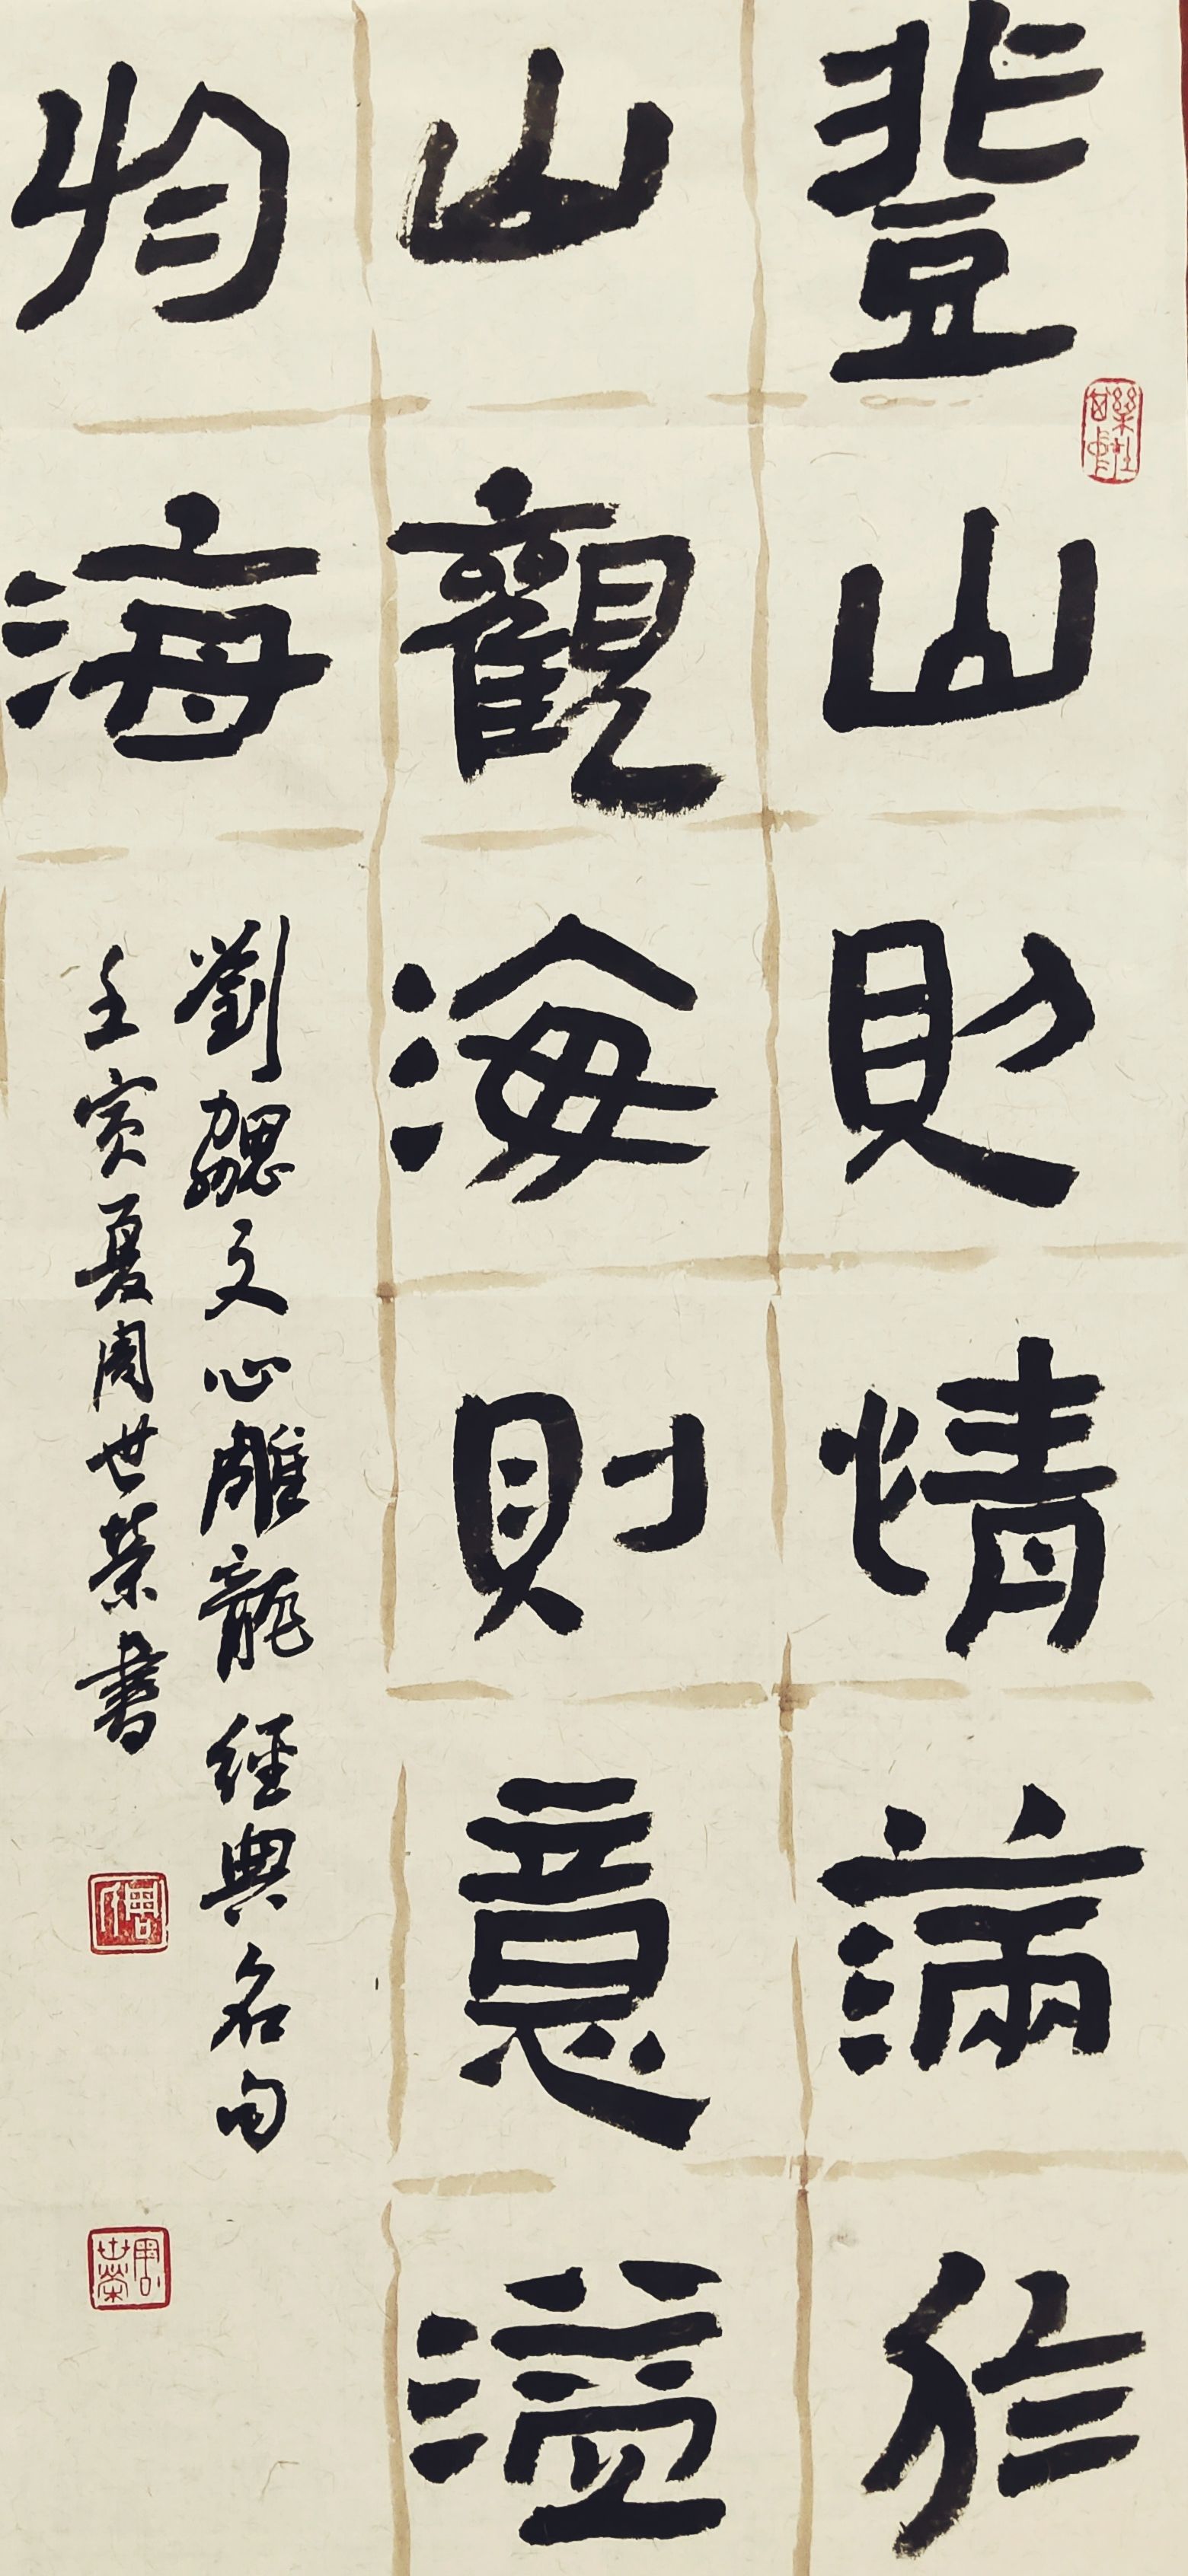 登山則情滿於
山觀海則意溢
於海
劉勰文心雕龍經典名句
壬寅夏周世榮書
周世榮